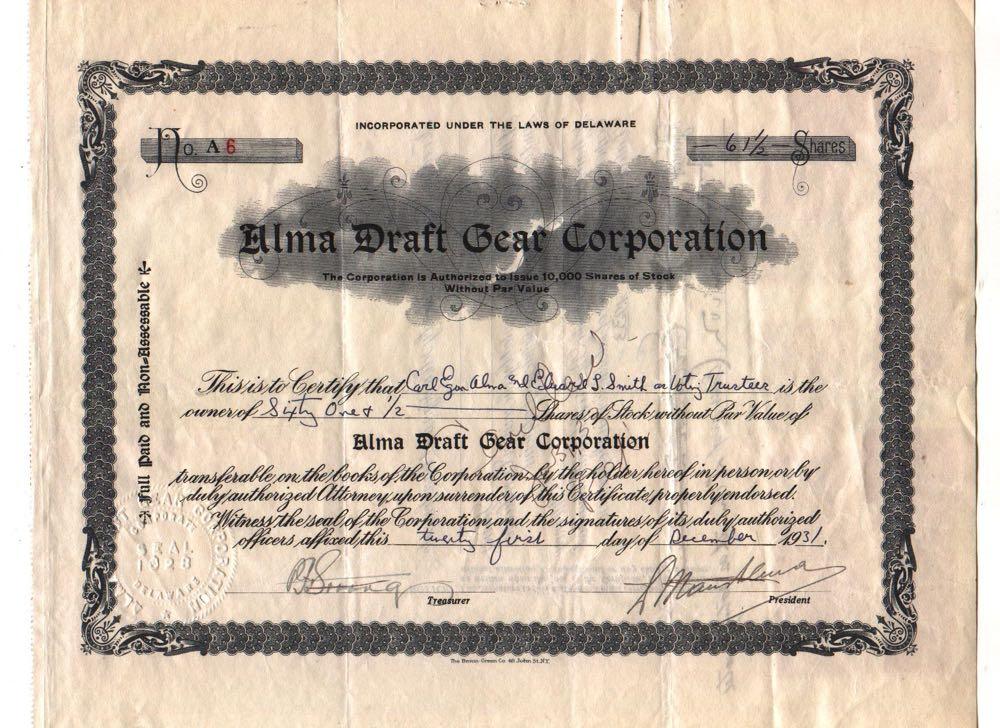 INCORPORATED UNDER THE LAWS OF DELAWARE
No. A6
61 1/2 Shares
Alma Draft Gear Corporation
The Corporation is Authorized to Issue 10,000 Shares of Stock
Without Par Value
Full Paid and Non-Assessable
This is to Certify that Carl Egon Alma and Edward S. Smith as Voting Trustees is the
owner of Sixty One & 1/2 Shares of Stock without Par Value of
Alma Draft Gear Corporation
transferable on the books of the Corporation by the holder hereof in person or by
duly authorized Attorney upon surrender of this Certificate properly endorsed.
Witness the seal of the Corporation and the signatures of its duly authorized
officers affixed this twenty first day of December 1931.
CORPORATION
SEAL
1928
DELAWARE
Treasurer
President
The Broun-Green Co. 48 John St. N.Y.